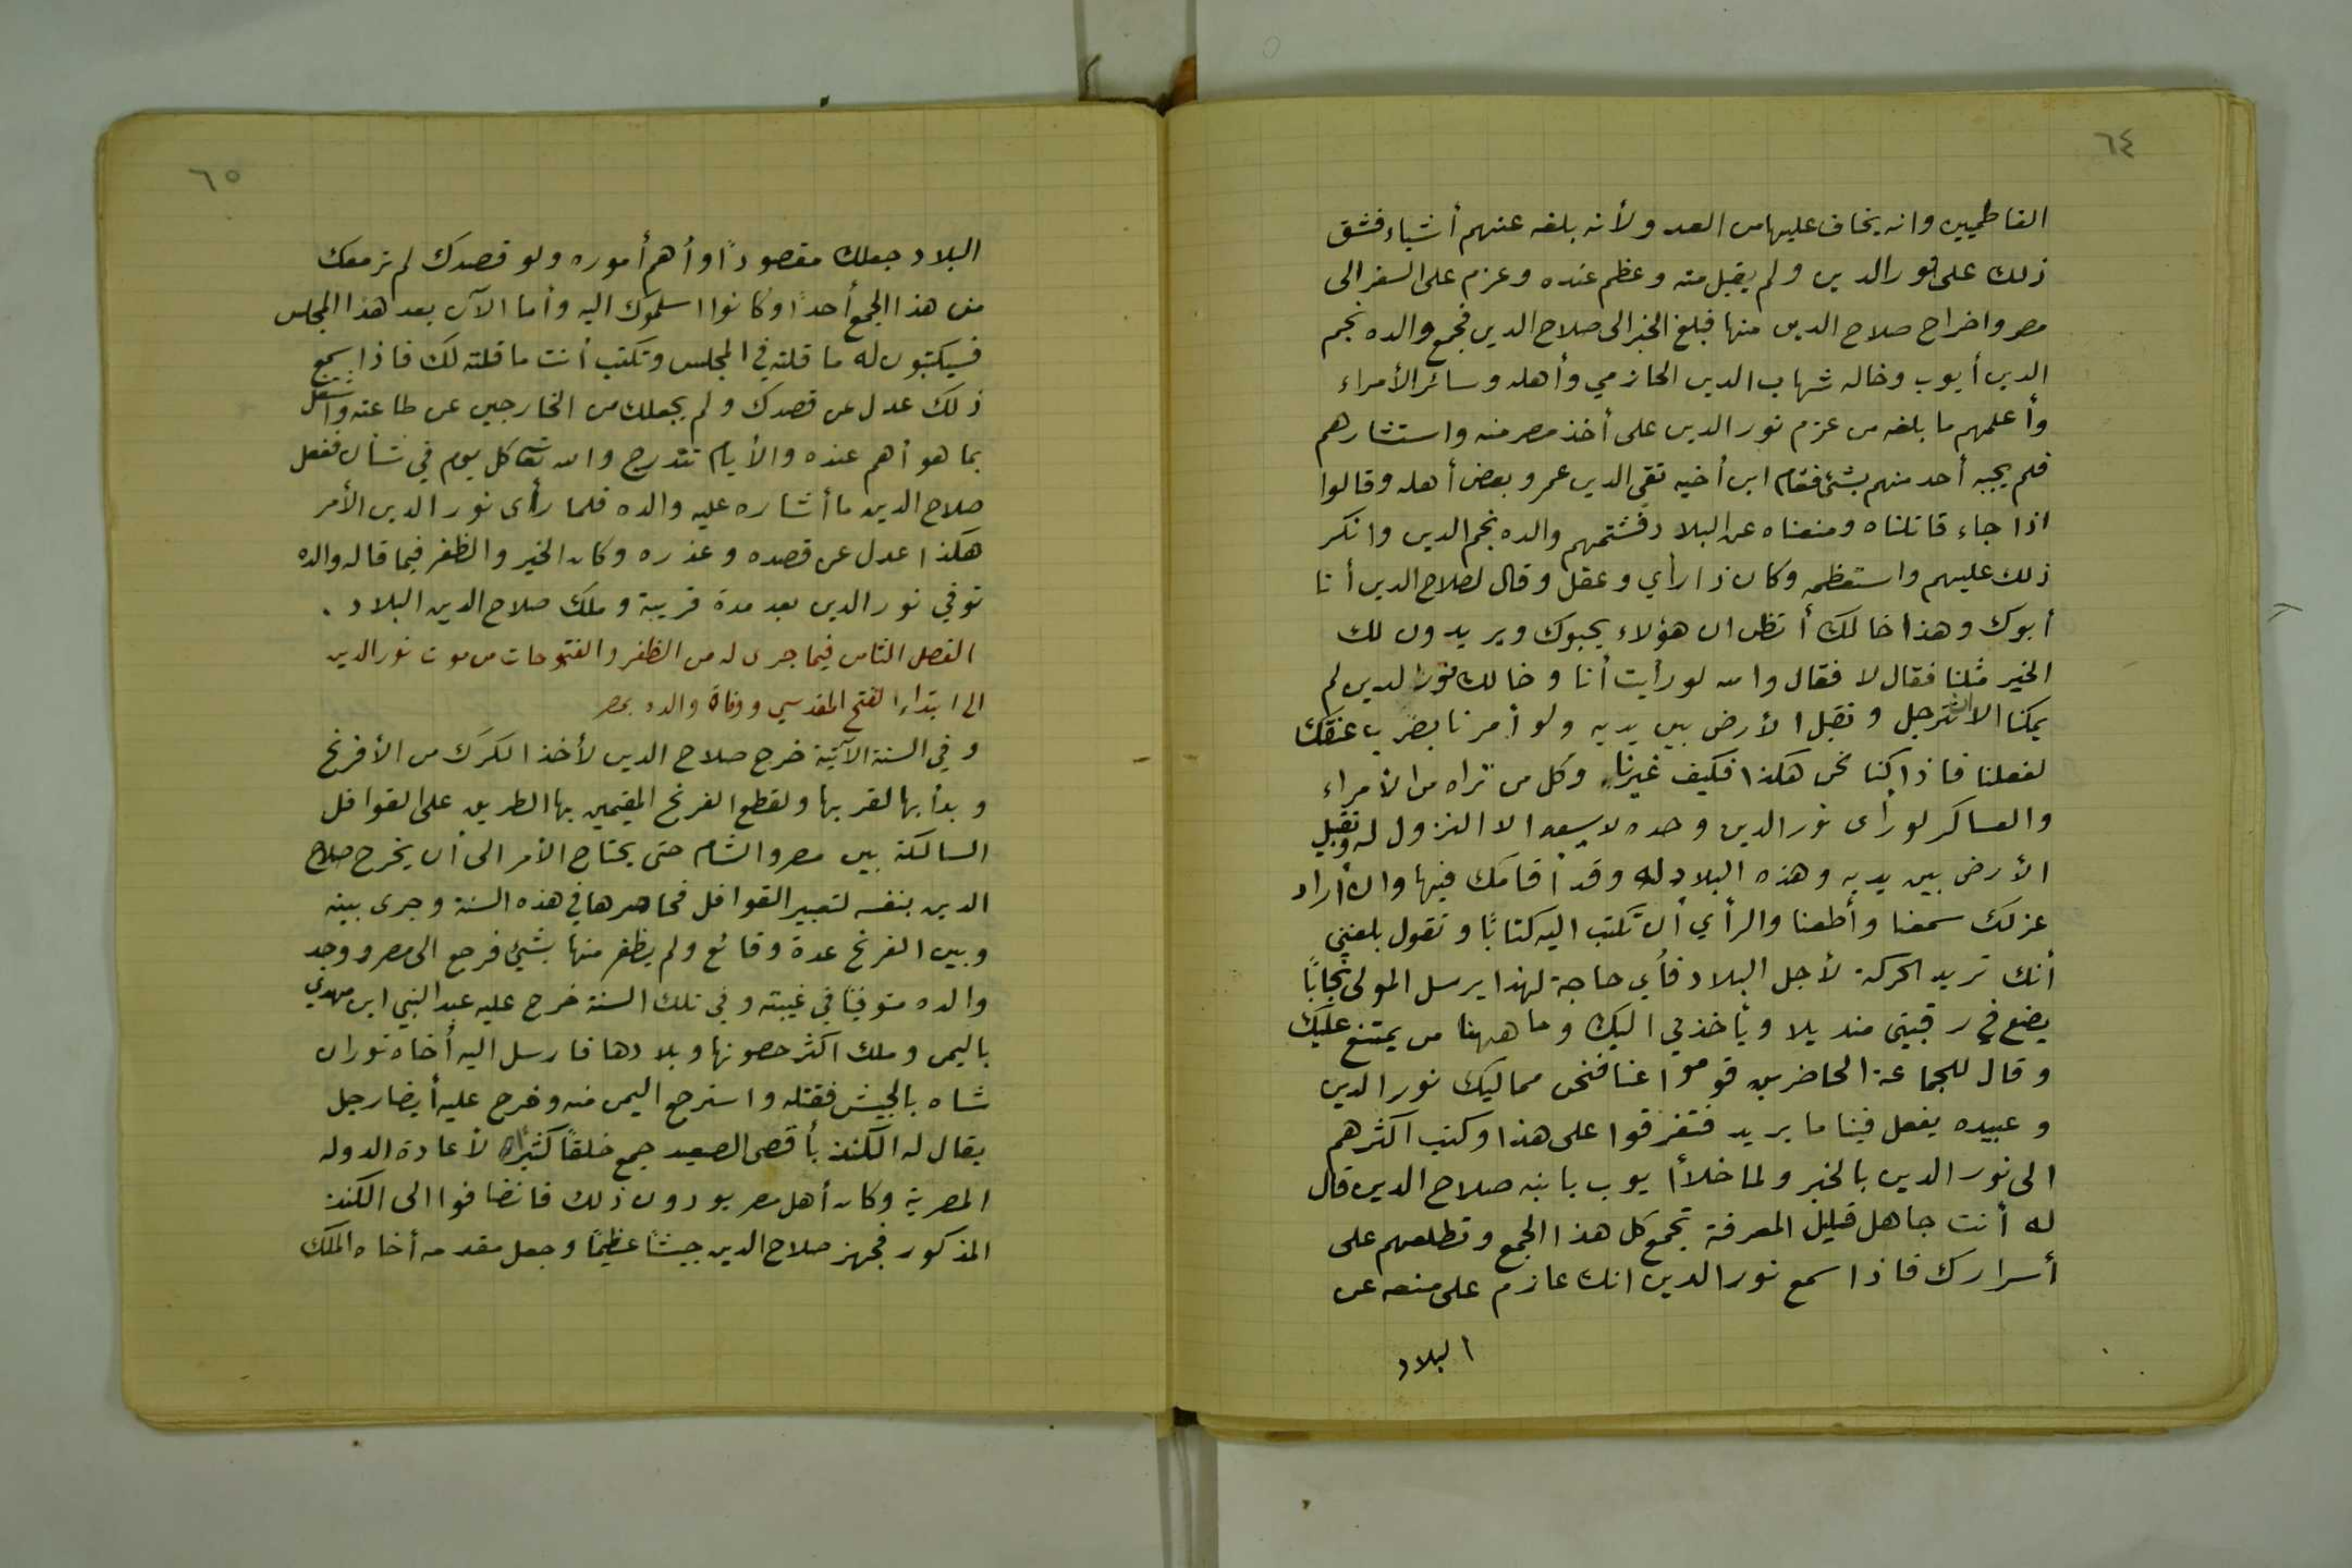 ٦٤
الفاطميين وانه يخاف عليها من العدو ولأنه بلغه عنهم أشياء فشق
ذلك على نور الدين ولم يقبل منه وعظم عنده وعزم على السفر الى
مصر واخراج صلاح الدين منها فبلغ الخبر الى صلاح الدين فجمع والده نجم
الدين أيوب وخاله شهاب الدين الحازمي وأهله وسائر الأمراء
وأعلمهم ما بلغه من عزم نور الدين على أخذ مصر منه واستشارهم
فلم يجبه أحد منهم بشئ فقام ابن أخيه تقي الدين عمر وبعض أهله وقالوا
اذا جاء قاتلناه ومنعناه عن البلاد فشتمهم والده نجم الدين وانكر
ذلك عليهم واستعظمه وكان ذا رأي وعقل وقال لصلاح الدين أنا
أبوك وهذا خالك أتظن ان هؤلاء يحبوك ويريدون لك
الخير مثلنا فقال لا فقال والله لو رأيت أنا وخالك نور الدين لم
يمكنا الا نترجل ونقبل الأرض بين يديه ولو أمرنا بضرب عنقك
لفعلنا فاذا كنا نحن هكذا فكيف غيرنا وكل من تراه من الأمراء
والعساكر لو رأى نور الدين وحده لا يسعه الا النزول له وتقبيل
الأرض بين يديه وهذه البلاد له وقد أقامك فيها وان أراد
عزلك سمعنا وأطعنا والرأي أن تكتب اليه كتابًا وتقول بلغني
أنك تريد الحركة لأجل البلاد فأي حاجة لهذا يرسل المولى نجابًا
يضع في رقبتي منديلا ويأخذني اليك وما ههنا من يمتنع عليك
وقال للجماعة الحاضرين قوموا عنا فنحن مماليك نور الدين
وعبيده يفعل فينا ما يريد فتفرقوا على هذا وكتب اكثرهم
الى نور الدين بالخبر ولما خلا أيوب بابنه صلاح الدين قال
له أنت جاهل قليل المعرفة تجمع كل هذا الجمع وتطلعهم على
أسرارك فاذا سمع نور الدين انك عازم على منعه عن
البلاد
٦٥
البلاد جعلك مقصودًا وأهم أموره ولو قصدك لم تر معك
من هذا الجمع أحدًا وكانوا اسلموك اليه وأما الآن بعد هذا المجلس
فسيكتبون له ما قلته في المجلس وتكتب أنت ما قلته لك فاذا سمع
ذلك عدل عن قصدك ولم يجعلك من الخارجين عن طاعته واشتغل
بما هو أهم عنده والأيام تتدرج والله تعالى كل يوم في شأن ففعل
صلاح الدين ما أشاره عليه والده فلما رأى نور الدين الأمر
هكذا عدل عن قصده وعذره وكان الخير والظفر فيما قاله والده
توفي نور الدين بعد مدة قريبة وملك صلاح الدين البلاد .
الفصل الثامن فيما جرى له من الظفر والفتوحات من موت نور الدين
الى ابتداء الفتح المقدسي ووفاة والده بمصر
وفي السنة الآتية خرج صلاح الدين لأخذ الكرك من الأفرنج
وبدأ بها لقربها ولقطع الفرنج المقيمين بها الطريق على القوافل
السالكة بين مصر والشام حتى يحتاج الأمر الى أن يخرج صلاح
الدين بنفسه لتعبير القوافل فحاصرها في هذه السنة وجرى بينه
وبين الفرنج عدة وقائع ولم يظفر منها بشيئ فرجع الى مصر ووجد
والده متوفيًا في غيبته وفي تلك السنة خرج عليه عبد النبي ابن مهدي
باليمن وملك اكثر حصونها وبلادها فارسل اليه أخاه توران
شاه بالجيش فقتله واسترجع اليمن منه وخرج عليه أيضا رجل
يقال له الكنز بأقصى الصعيد جمع خلقًا كثيرًا لأعادة الدولة
المصرية وكان أهل مصر يودون ذلك فانضافوا الى الكنز
المذكور فجهز صلاح الدين جيشًا عظيمًا وجعل مقدمه أخاه الملك